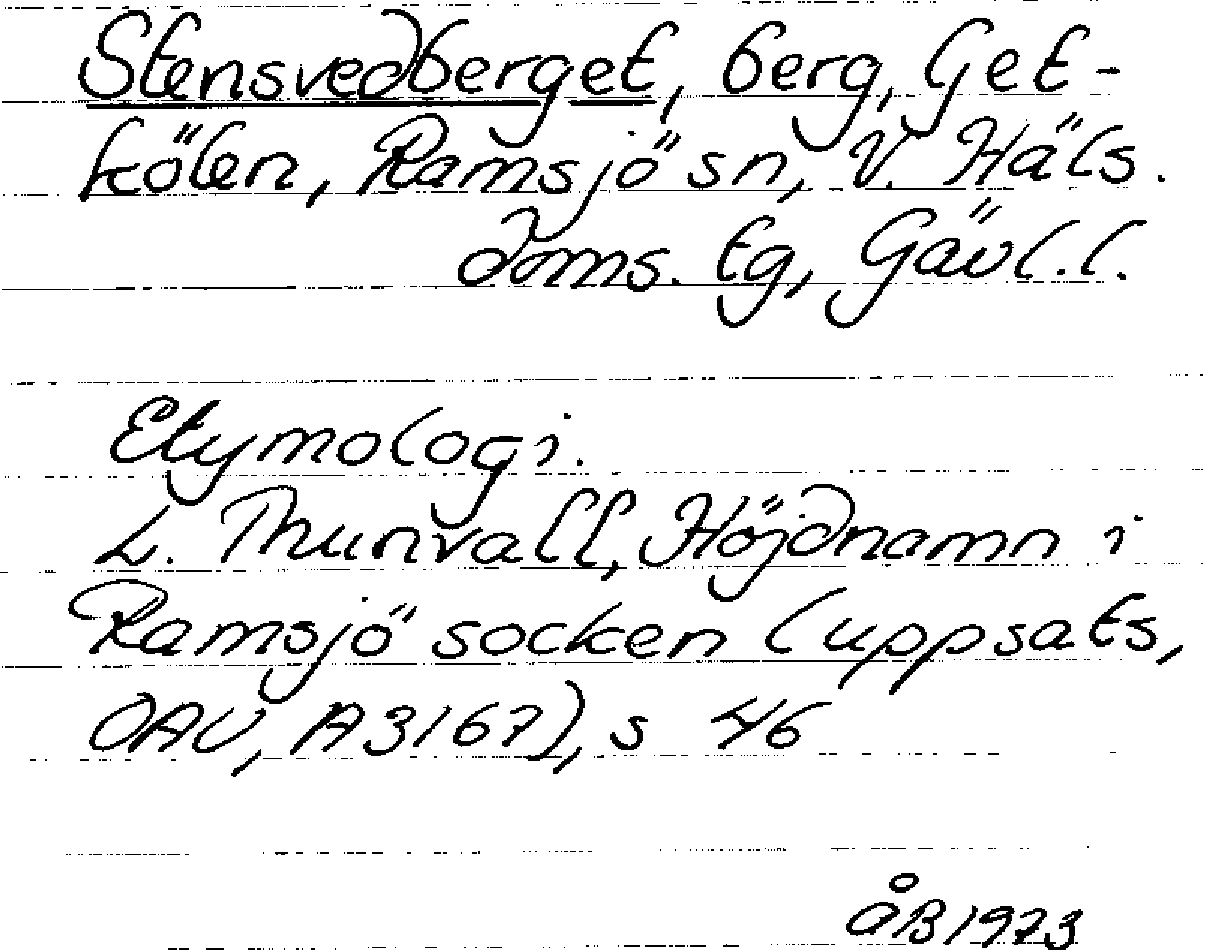 Stensvedberget, berg, Get-
kölen, Ramsjö sn, V. Häls.
doms. tg, Gävl. l.
Etymologi.
L. Thunvall, Höjdnamn i
Ramsjö socken (uppsats,
OAU, A3167), s 46
ÅB 1973